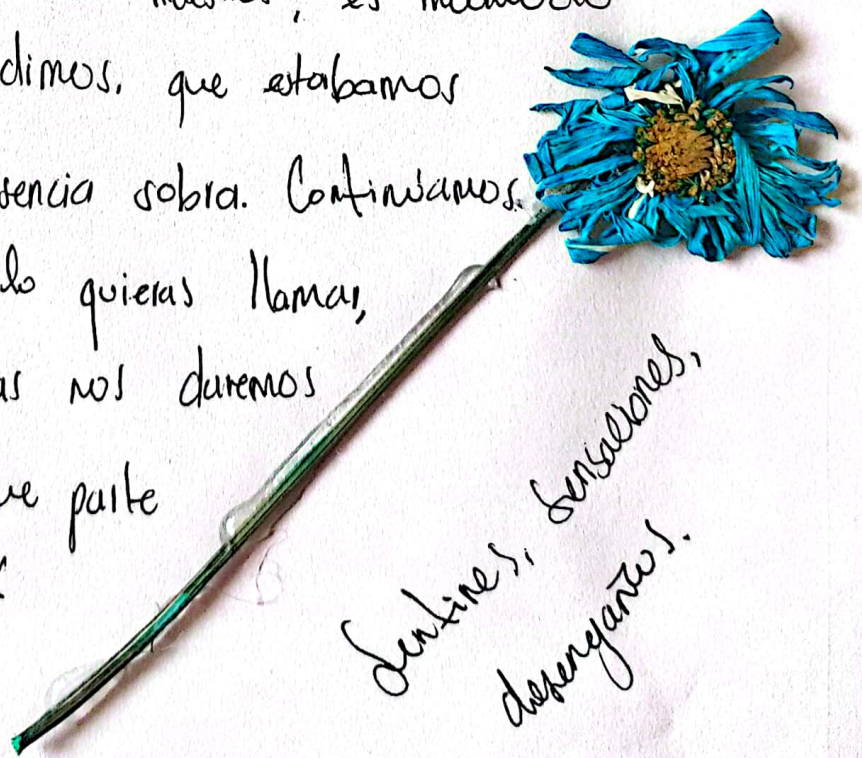 dimos, que estabamos
sencia sobra. Continúamos.
lo quieras llamar,
as nos duremos
ue parte
Sentires, sensaciones,
desengaños.